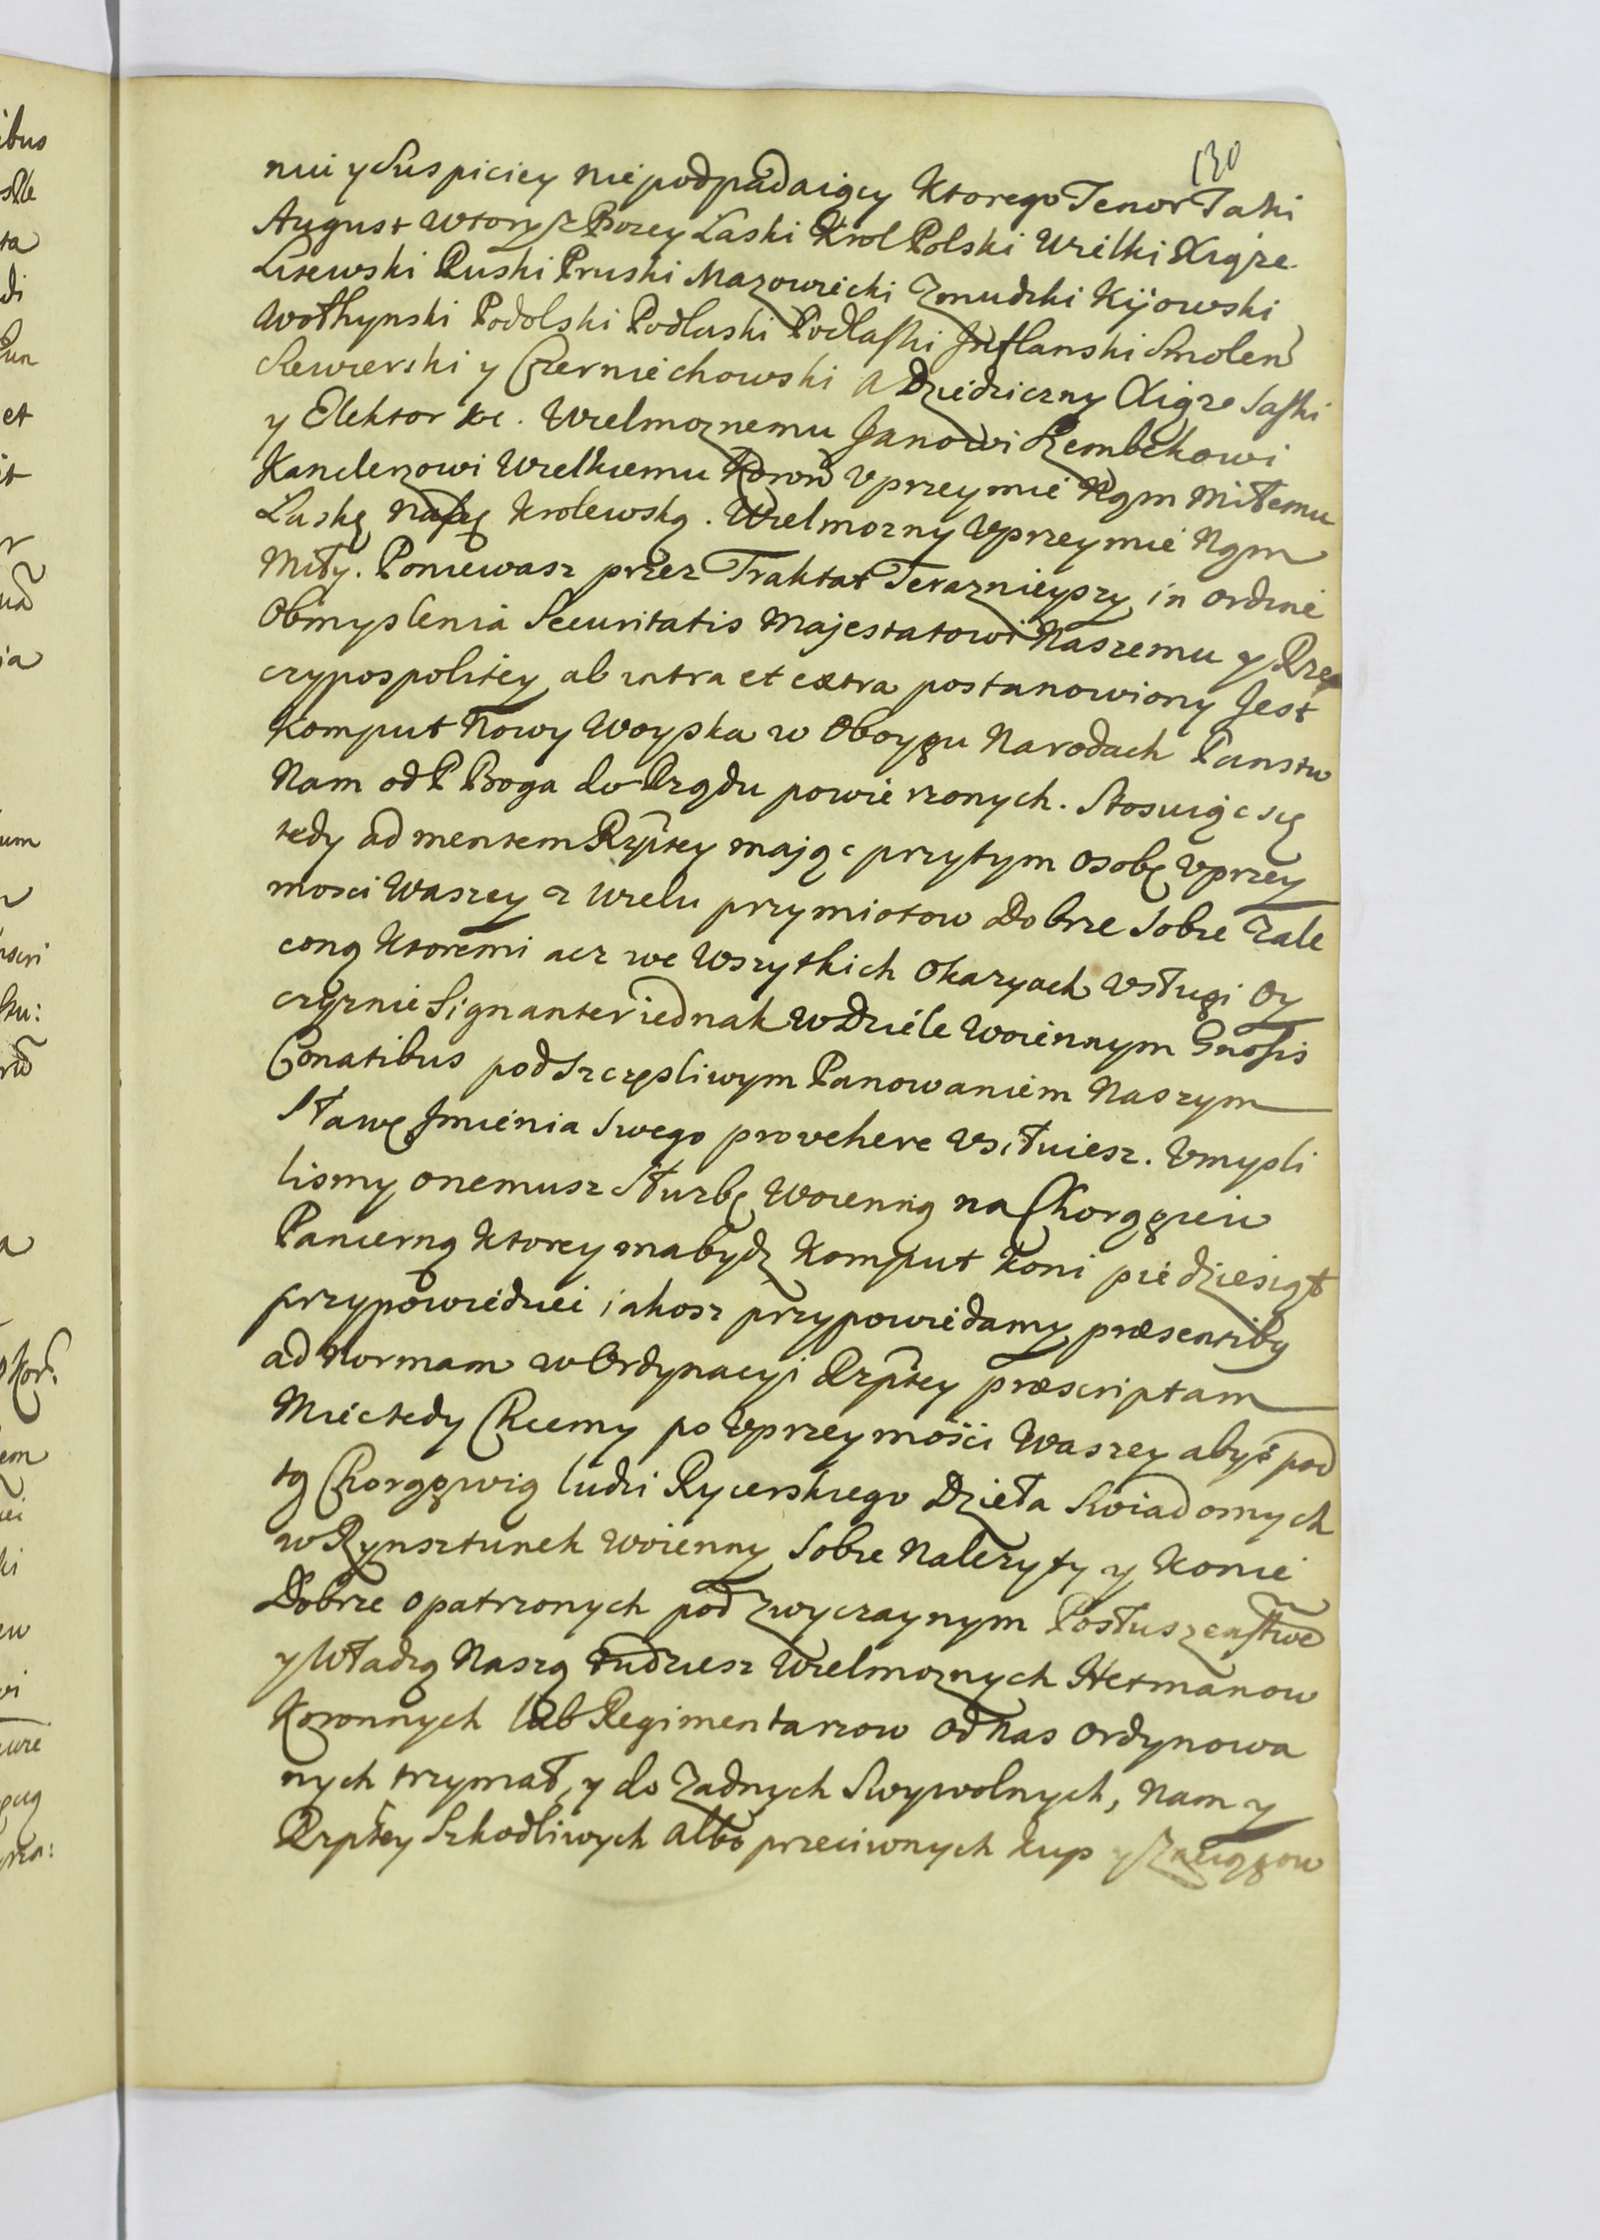 130
nui y Suspiciey nie podpadaiący Ktorego Tenor Taki
August Wtory z Bozey Laski Krol Polski Wielki Xiąze
Litewski Ruski Pruski Mazowiecki Zmudzki Kijowski
Wołhynski Podolski Podluski Podlaski Inflanski Smolen
Siewierski y Czerniechowski A Dziedziczny Xiąze Saski
y Elektor &c. Wielmoznemu Janowi Szembekowi
Kanclerzowi Wielkiemu Koron Vprzeymie Ngm Miłemu
Laskę Naszę Krolewską. Wielmozny Vprzeymie Ngm
Miły. Poniewasz przez Traktat Teraznieyszy in ordine
Obmyslenia Securitatis Majestatowi Naszemu y Rze
czypospolitey ab intra et extra postanowiony Jest
Komput Nowy Woyska w Oboygu Narodach Panstw
Nam od P Boga do Rządu powierzonych. Stosuiąc się
tedy ad mentem Rzptey mając przytym osobę Vprzey
mosci Waszey z wielu przymiotow Dobrze Sobie Zale
coną Ktoremi acz we Wszytkich Okazyach Vsługi Oy
czyznie Signanter iednak w Dziele Woiennym Gnosis
Conatibus pod Szczęsliwym Panowaniem Naszym
Sławę Jmienia Swego provehere Vsiłuiesz. Vmysli
lismy onemusz Słuzbę Woienną na Chorągiew
Pancerną Ktorey ma bydz Komput Koni piedziesiąt
przypowiedziei iakosz przypowiedamy præsentiby
ad Normam w Ordynacyi Rzptey præscriptam
Miec tedy Chcemy po Vprzeymości Waszey abyś pod
tą Chorągwią ludzi Rycerskiego Dzieła Swiadomych
w Rynsztunek Woienny Sobie Nalezyty y Konie
Dobrze opatrzonych pod zwyczaynym Posłuszenstwe
y Władzą Naszą tudziesz Wielmoznych Hetmanow
Koronnych lub Regimentarzow od Nas Ordynowa
nych trzymał, y do Zadnych Swywolnych, Nam y
Rzptey Szkodliwych Albo przeciwnych kup y Zaciągow